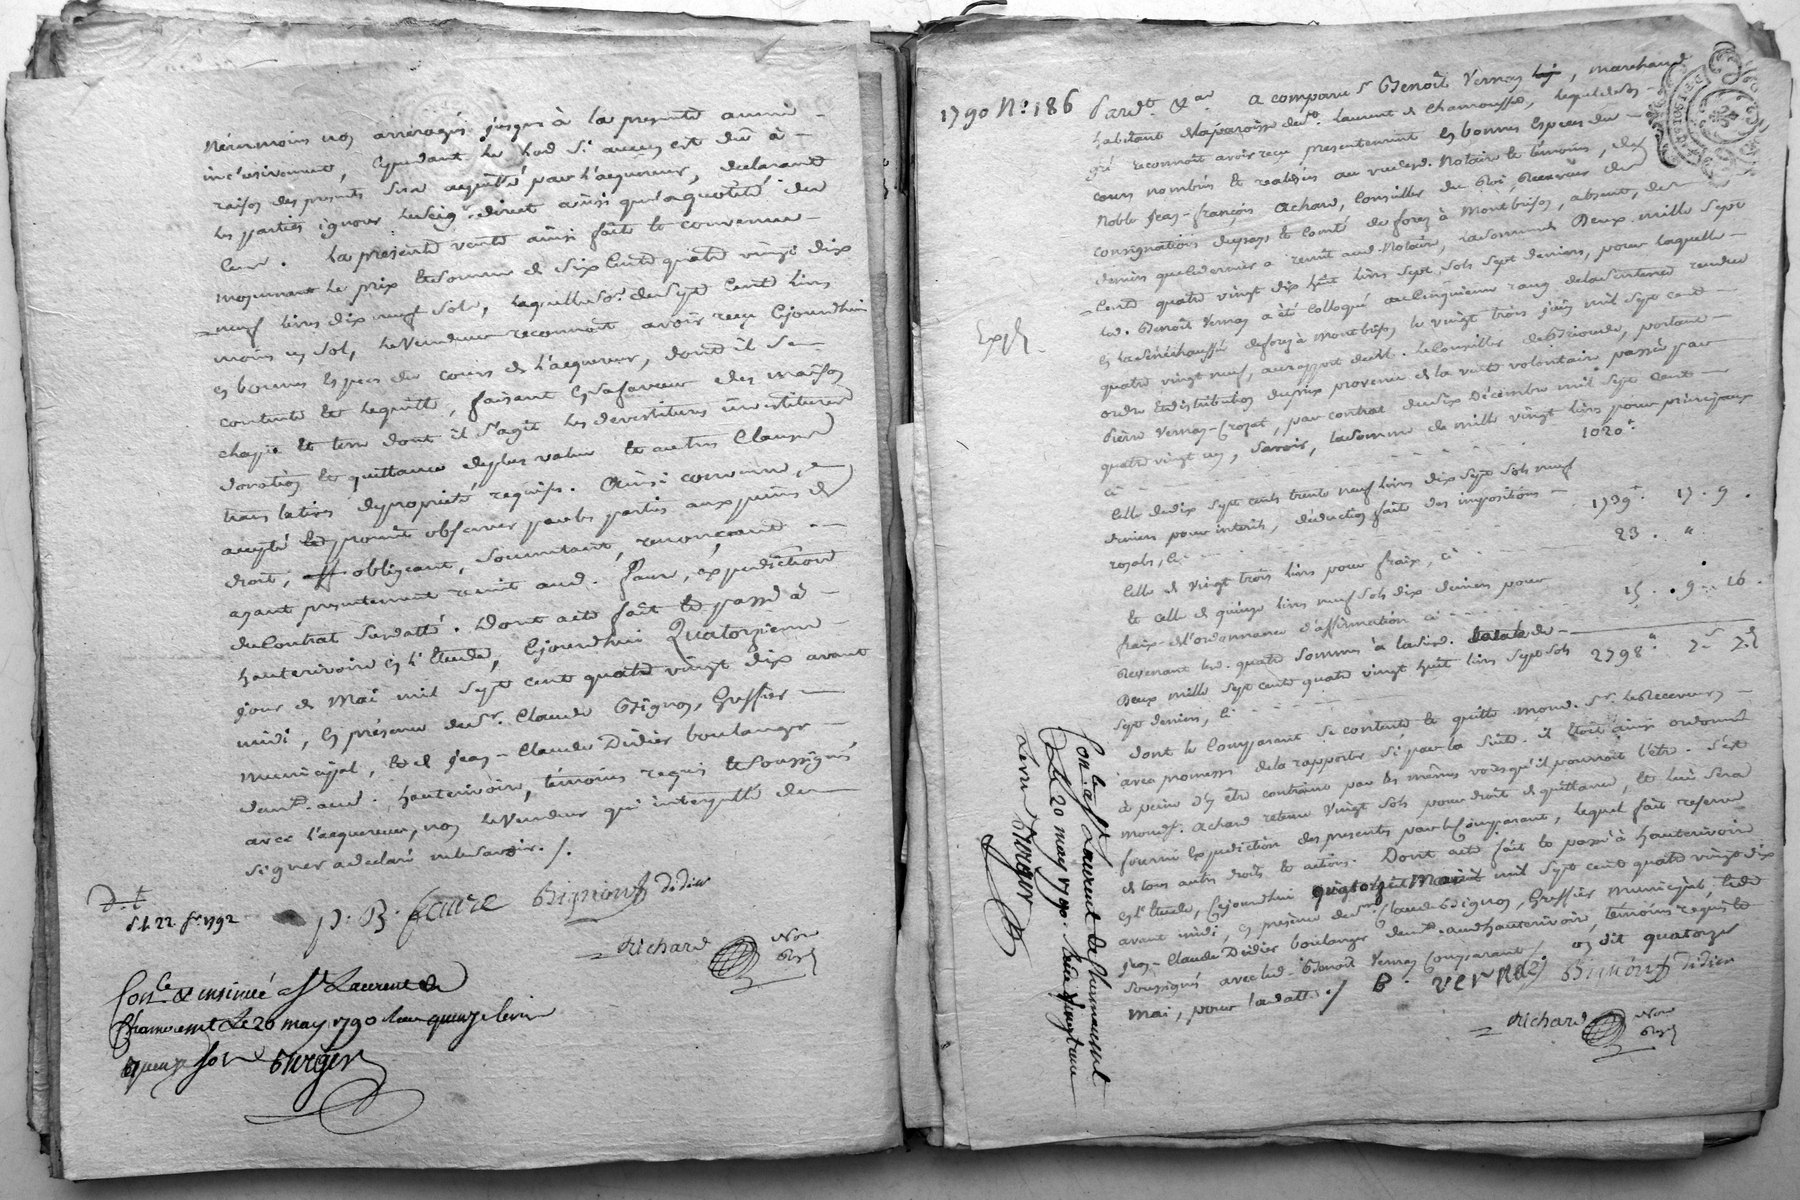 Néanmoins nos arrérages jusques à la presente année
inclusivement, Cependant le lod si aucun est dû à
raison des presents sera acquitté par l'acquereur, declarant
les parties ignorer le seigr. direct ainsi que la quotité du
Cens. La presente vente ainsi faite et convenue
moyennant le prix et somme de six Cents quatre vingt dix
neuf livres dix neuf sols, laquelle so.e de sept Cents livres
moins un sol, le Vendeur reconnoit avoir reçu Cejourdhui
en bonnes Especes du cours de l'acquereur, dont il se
contente et le quitte, faisant en sa faveur des maison
chapit et terre dont il s'agit les devestitures investitures
donation et quittance de plus value et autres Clauses
translatives de propriété requises. Ainsi convenu,
accepté et promit observer par les parties aux peines de
droit, obligeant, soumettant, renonçant
ayant presentement remit aud. Faure, expedition
du Contrat susdatté. Dont acte fait et passé à
hauterivoire en l'Etude, Cejourdhui Quatorzieme
jour de Mai mil sept cent quatre vingt dix avant
midi, en présence de sr. Claude Bignon, Greffier
municipal, et de Jean-Claude Didier boulanger
demt. aud. hauterivoire, témoins requis et soussignés
avec l'acquereur, non le Vendeur qui interpellé de
signer a declaré ne le savoir./.
P. B. faure Bignon didier
Richard Not. Royl
d.t
d l. 22. fr 1792
Con.le & insinué a St Laurent de
Chamousset Le 20 may 1790 Reçu quinze livres
quinze sols Burger
1790 N°: 186 Pardt. &a. A comparu sr Benoît Vernay, marchand
habitant de la paroisse de St. Laurent de Chamousset, lequel de son
gré reconnoit avoir reçu presentement En bonnes Especes du
cours nombrés et realisées au vu desd. Notaire et témoins, de
Noble Jean-François Achard, Conseiller du Roi, Receveur des
consignations du pays et Comté de forez à Montbrison, absent, des
deniers que ce dernier a remit aud. Notaire, la somme de Deux mille sept
Cents quatre vingt dix huit livres sept sols sept deniers, pour laquelle
led. Benoît Vernay a été Colloqué au Cinquieme rang de la sentence rendue
en la sénéchaussée de forez à Montbrison le vingt trois juin mil sept cent
quatre vingt neuf, au rapport de Mr. le Conseiller, portant
ordre et distribution du prix provenu de la vente volontaire passée par
Pierre Vernay-Crozat, par contrat du six Décembre mil sept Cent
quatre vingt un, Savoir, la somme de mille vingt livres pour principaux
ci 1020.
Celle de dix sept cents trente neuf livres dix sept sols neuf
deniers pour interets, déduction faite des impositions
royales, ci 1739. 17. 9.
Celle de vingt trois livres pour fraix, ci 23. "
et celle de quinze livres neuf sols dix deniers pour
fraix de l'ordonnance d'affirmation ci 15. 9. 10.
Revenant lesd. quatre sommes à la sud. de
Deux mille sept cents quatre vingt huit livres sept sols
sept deniers, ci 2798. 7. 7.
Expé.
dont le Comparant se contente et quitte mond. Sr. le Receveur,
avec promesse de la rapporter si par la suite il étoit ainsi ordonné
à peine d'y être contraint par les mêmes voies qu'il pourroit l'être. S'est
mondt. Achard retenu Vingt sols pour droit de quittance, et lui sera
fourni Expedition des presentes par le Comparant, lequel fait reserve
de tous autres droits et actions. Dont acte fait et passé à hauterivoire
en l'Etude, Cejourdhui quatorze Mai mil sept cent quatre vingt dix
avant midi, en présence de sr. Claude Bignon, Greffier municipal, et de
Jean-Claude Didier boulanger demt. aud hauterivoire, témoins requis et
soussignés avec led. Benoît Vernay Comparant, dit quatorze
Mai, pour la datte./. B. vernay Bignon didier
Richard Not. Royl
Con.le a St Laurent de Chamousset
Le 20 may 1790. Reçu vingt une
livres Burger